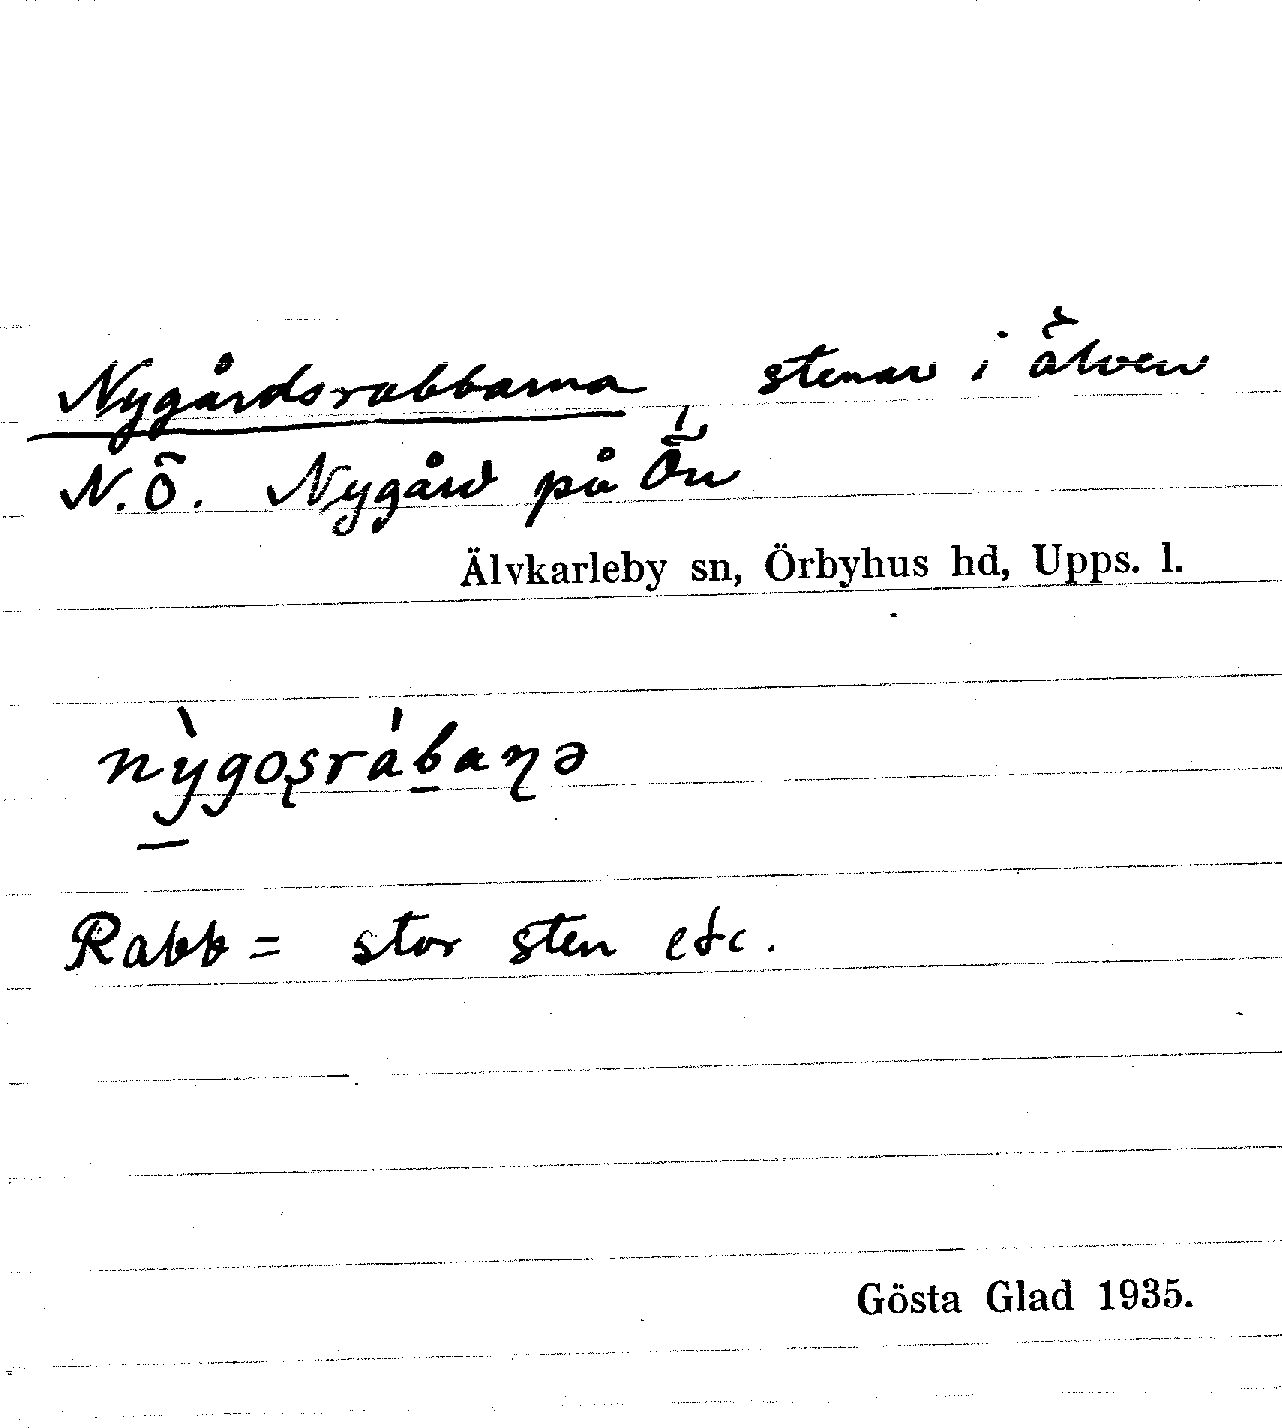 Nygårdsrabbarna, stenar i älven
N.Ö. Nygård på Ön
Älvkarleby sn, Örbyhus hd, Upps. l.
nỳgoʂrábaɳə
Rabb = stor sten etc.
Gösta Glad 1935.